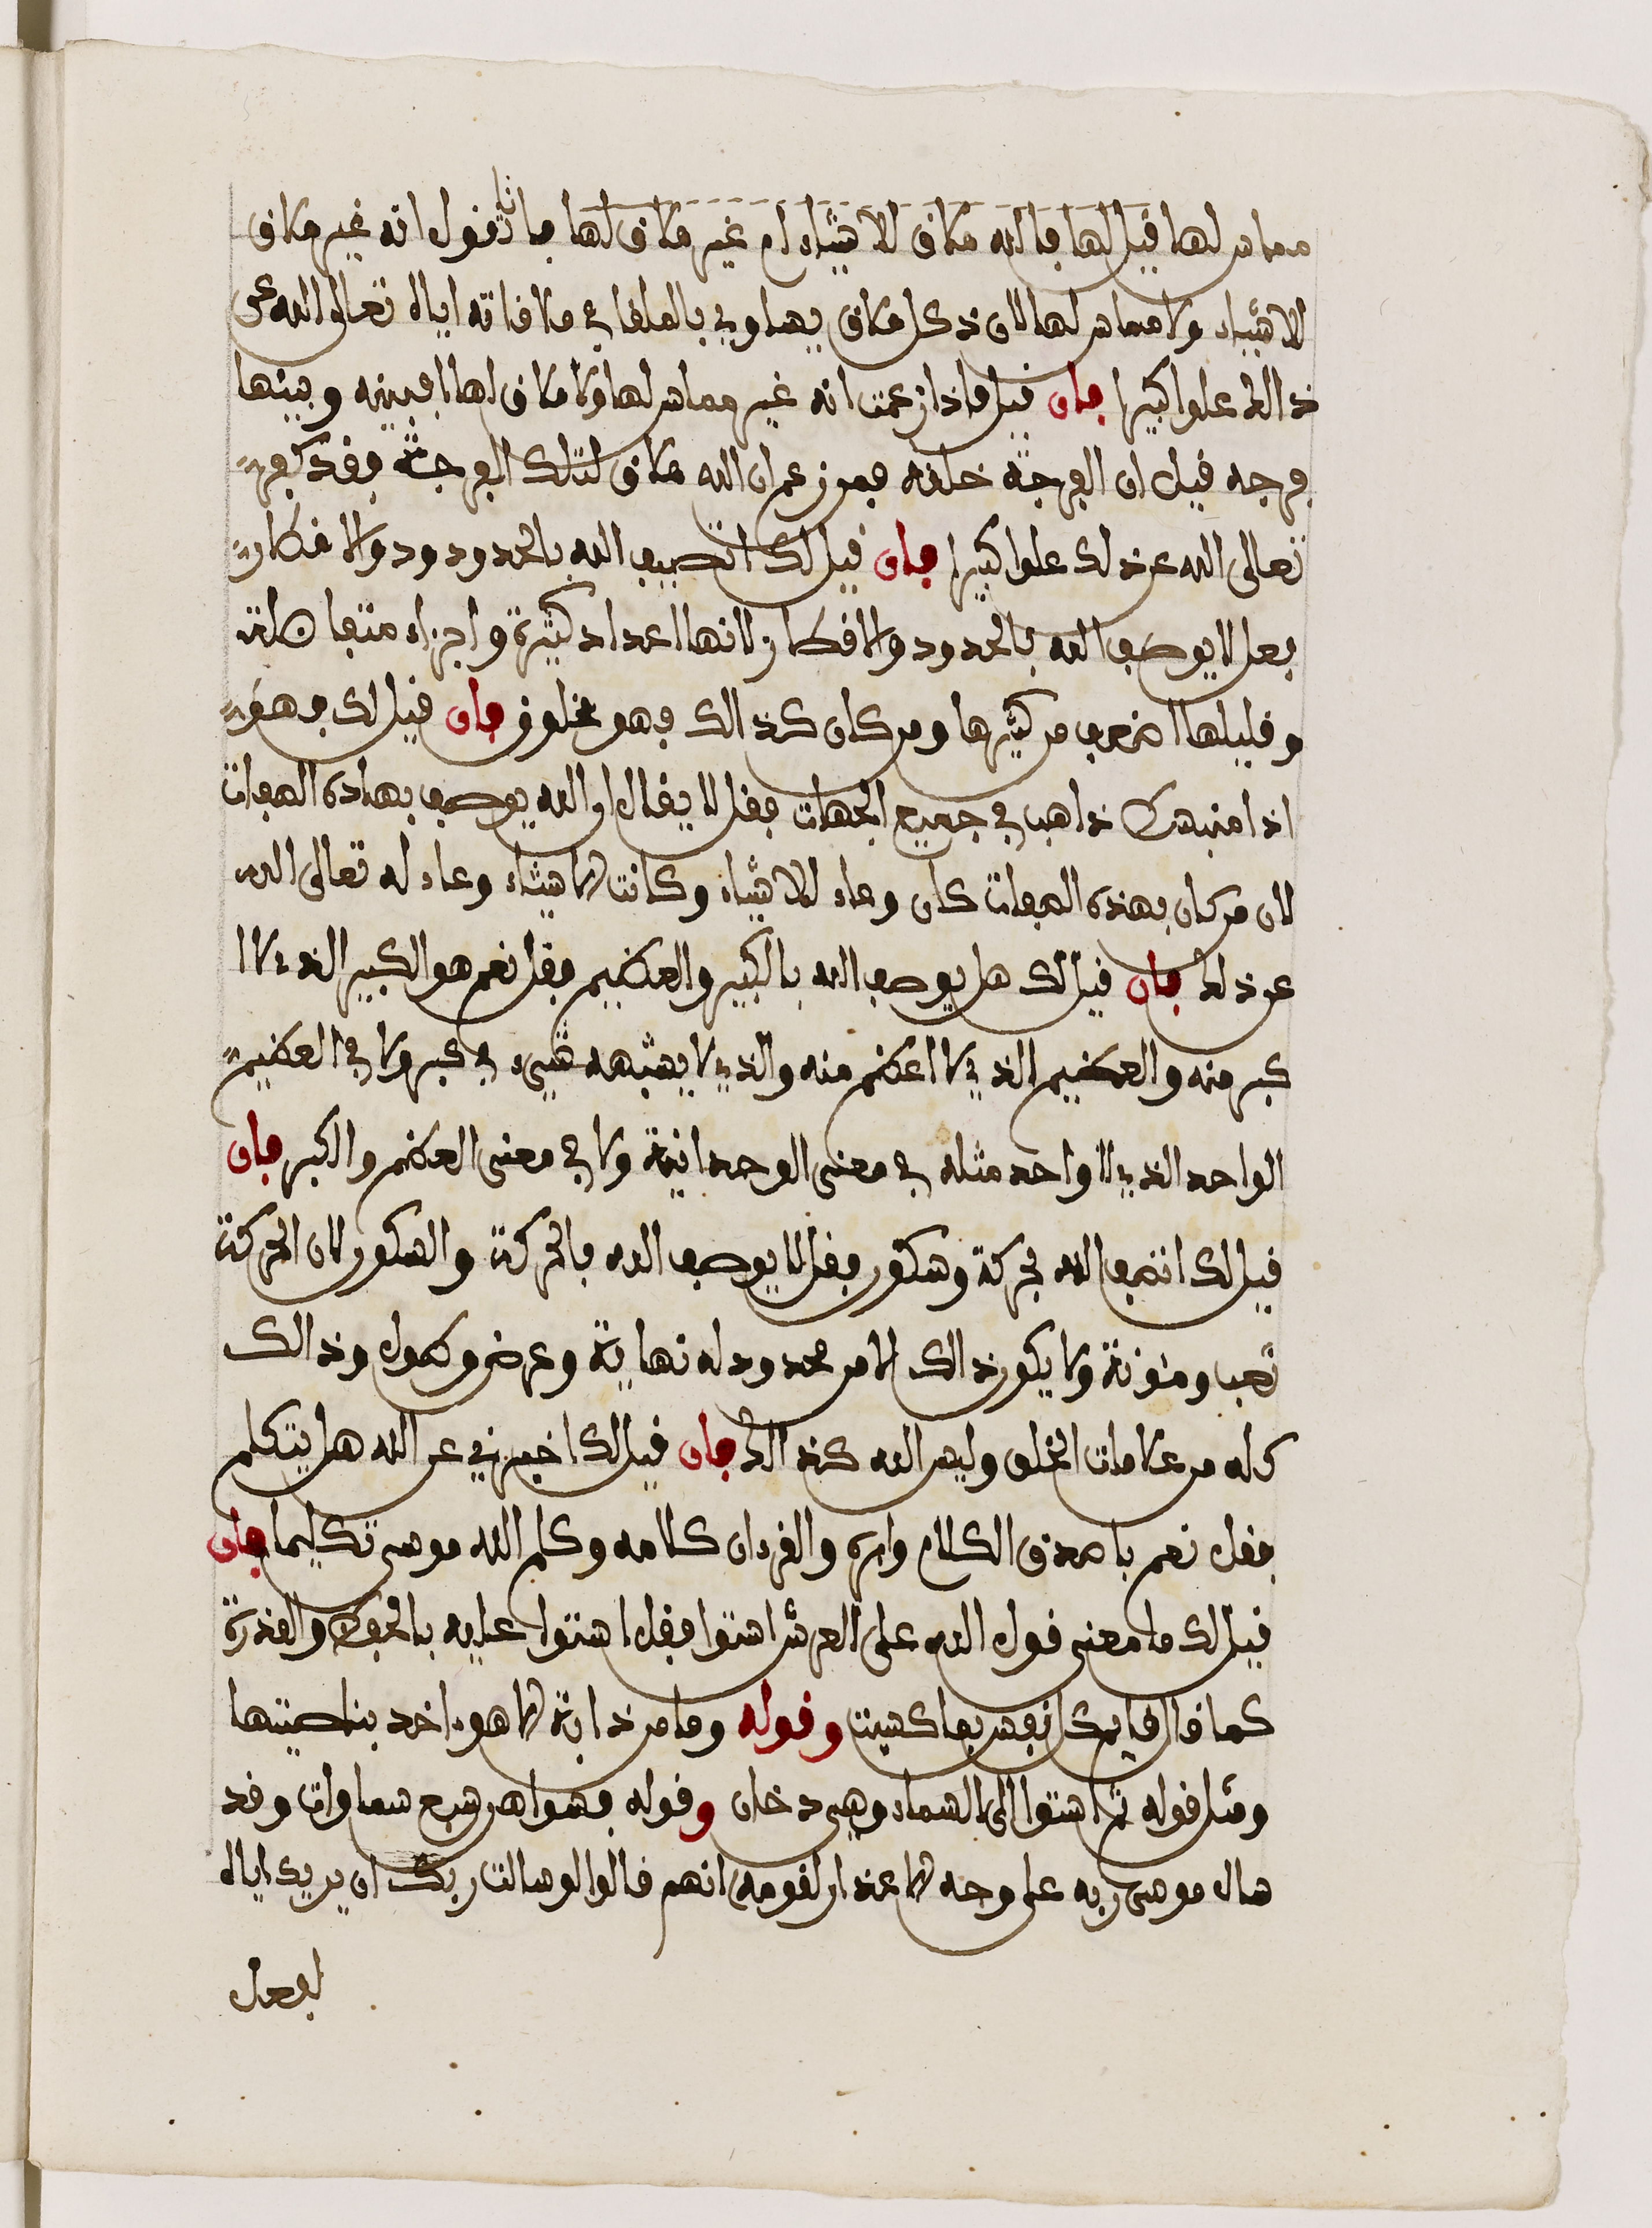 مماس لها قيل لها فالله ملاق للاشياء ام غير ملاق لها فانا نقول انه غير ملاق
للاشياء ولا مماس لها لان ذكل ملاق يساوي بالملقا في ملاقاته اياه تعالى الله عن
ذالك علوا كبيرا فان قيل فاذا زعمت انه غير مماس لها ولا ملاق لها افبينه وبينها
فرجه قيل ان الفرجة خلقه فمن زعم ان الله ملاق لتلك الفرجة فقد كفر
تعالى الله عن ذلك علوا كبيرا فان قيل لك اتصيف الله بالحدودود والاقطار
فعل لا يوصف الله بالحدود والاقطار لانها اعداد كثيرة واجزاء متفاضلة
وقليلها اضعف من كثيرها ومن كان كذالك فهو مخلوق فان قيل لك فهو
اذا منبسط ذاهب في جميع الجهات فقل لا يقال ان الله يوصف بهاذه الصفات
لان من كان بهذه الصفات كان وعاء للاشياء وكانت الاشياء وعاء له تعالى الله
عن ذلك فان قيل لك هل يوصف الله بالكبير والعظيم فقل نعم هو الكبير الذي لا ا
كبر منه والعظيم الذي لا اعظم منه والذي لا يشبهه شيء في كبر ولا في العظيم
الواحد الذي لا واحد مثله في معنى الوحدانية ولا في معنى العظم والكبر فان
قيل لك اتصف الله بحركة وسكون فقل لا يوصف الله بالحركة والسكون لان الحركة
تعب ومئونة ولا يكون ذالك الا من محدود له نهاية وعرض وطول وذالك
كله من علامات الخلق وليس الله كذالك فان قيل لك اخبرني عن الله هل يتكلم
فقل نعم باصدق الكلام وابره والقرءان كلامه وكلم الله موسى تكليما فان
قيل لك ما معنى قول الله على العرش استوا فقل استوا عليه بالحفظ والقدرة
كما قال قايم كل نفس بما كسبت وقوله وما من دابة الا هو ءاخد بناصيتها
ومثل قوله ثم استوا الى السماء وهي دخان وقوله فسواهن سبع سماوات وقد
سال موسى ربه على وجه الاعذار لقومه انهم قالوا لو سالت ربك ان يريك اياه
لفعل